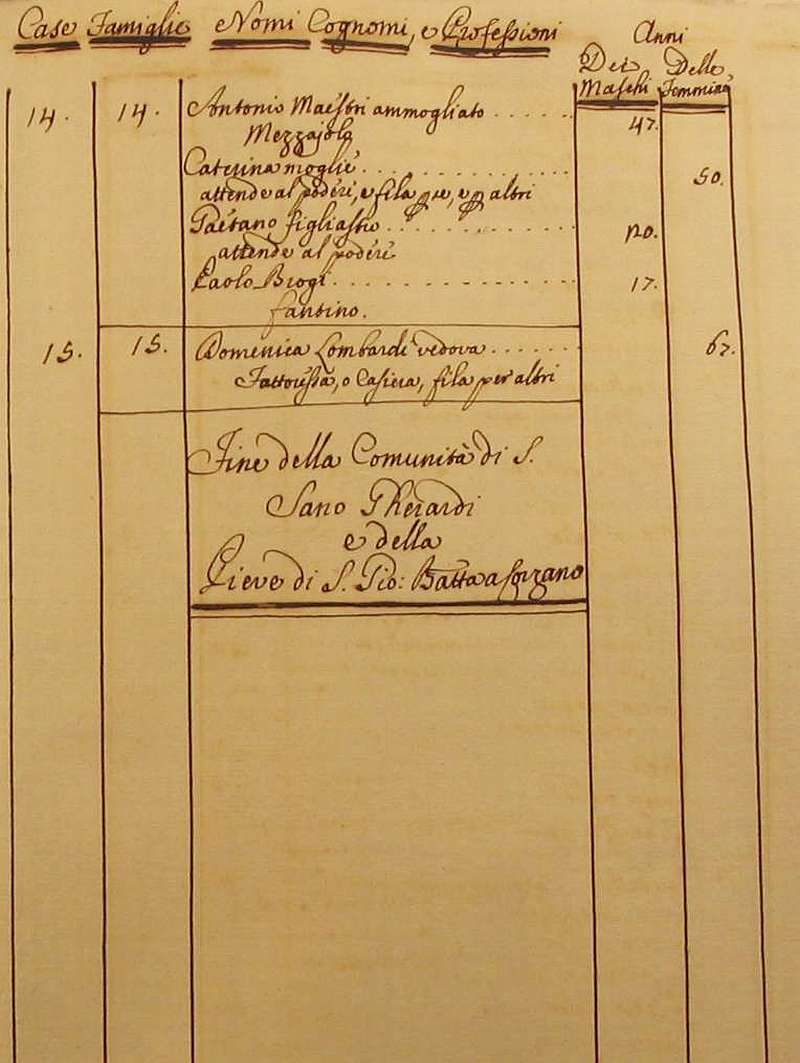 Case Famiglie Nomi Cognomi, e Professioni Anni
Dei Maschi Delle Femmine
14. 14. Antonio Maestri ammogliato . . . . . . 47.
Mezzajolo
Caterina moglie . . . . . . . . . . . . 50.
attende al podere, e fila per se, e per altri
Gaetano figliastro . . . . . . . . . . 20.
attende al podere
Paolo Biogi . . . . . . . . . . . . . 17.
fantino.
15. 15. Domenica Lombardi vedova . . . . . . 67.
Fattoressa, o Casiera, fila per altri
Fine della Comunità di S.
Sano Gherardi
e della
Pieve di S. Gio: Batta a